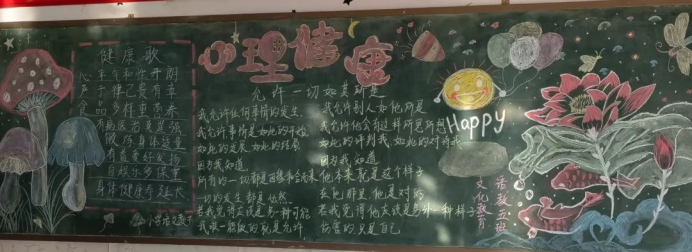 心理健康
健康歌
心平气和性开朗
严于律己要有革
食品多样重营养
有益爱好发扬
自娱自乐多保重
身体健康寿延长
允许一切如其所是
我允许任何事情的发生
我允许事情是如此的开始
如此的发展 如此的结局
因为我知道
所有的一切都是因缘和合而来
一切的发生都是必然
若我觉得应该是另一种可能
我唯一能做的就是允许
我允许别人如他所是
我允许他会有这样所思所想
如此的评判我 如此的对待我
因为我知道
他本来就是这个样子
在他那里 他是对的
若我觉得他应该是另外一种样子
伤害的只是自己
Happy
文化教育
语教五班